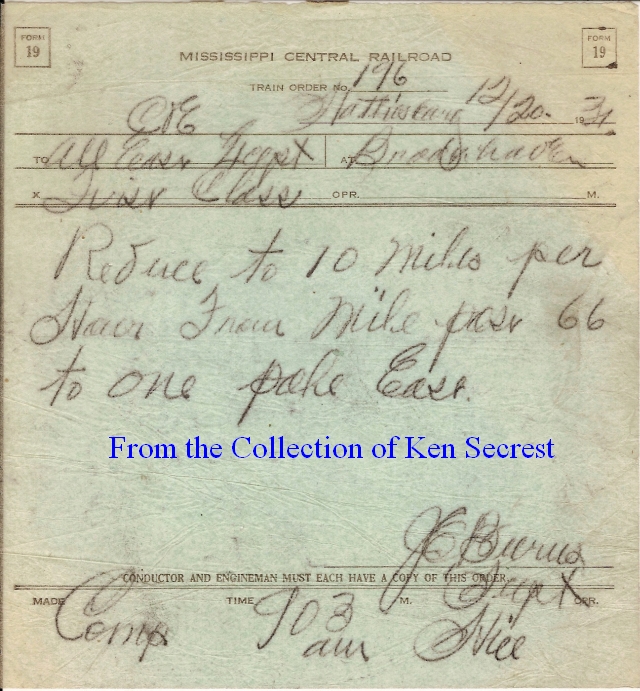 FORM 19
FORM 19
MISSISSIPPI CENTRAL RAILROAD
TRAIN ORDER No. 196
Hattiesburg 12/20- 1931
C&E
TO All East Except AT Brookhaven
X First Class OPR. M.
Reduce to 10 miles per
Hour From Mile post 66
to one pole East.
From the Collection of Ken Secrest
J E Burns
CONDUCTOR AND ENGINEMAN MUST EACH HAVE A COPY OF THIS ORDER.
Supt
MADE Comp TIME 903 am M. OPR.